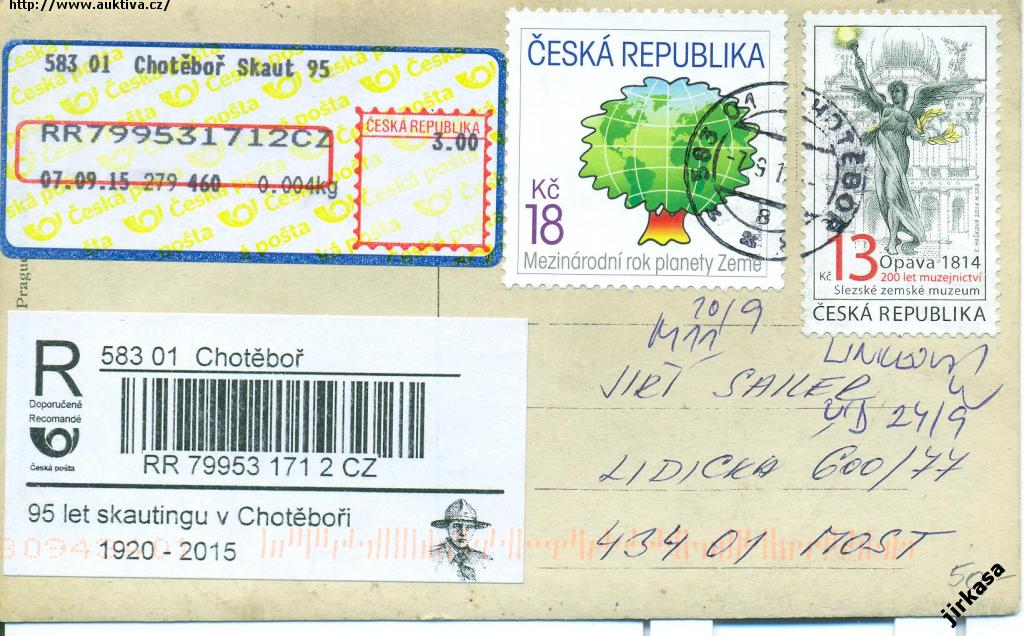 http://www.auktiva.cz/
583 01 Chotěboř Skaut 95
RR799531712CZ
ČESKÁ REPUBLIKA
3.00
07.09.15 279 460 0.004kg
Česká pošta
ČESKÁ REPUBLIKA
Kč
18
Mezinárodní rok planety Země
583 01
CHOTĚBOŘ
Kč 13 Opava 1814
200 let muzejnictví
Slezské zemské muzeum
ČESKÁ REPUBLIKA
Prague
R
583 01 Chotěboř
Doporučeně
Recomandé
Česká pošta
RR 79953 171 2 CZ
95 let skautingu v Chotěboři
1920 - 2015
20/9
JIŘÍ SAILER
24/9
LIDICKA 600/77
434 01 MOST
50-
jirkasa